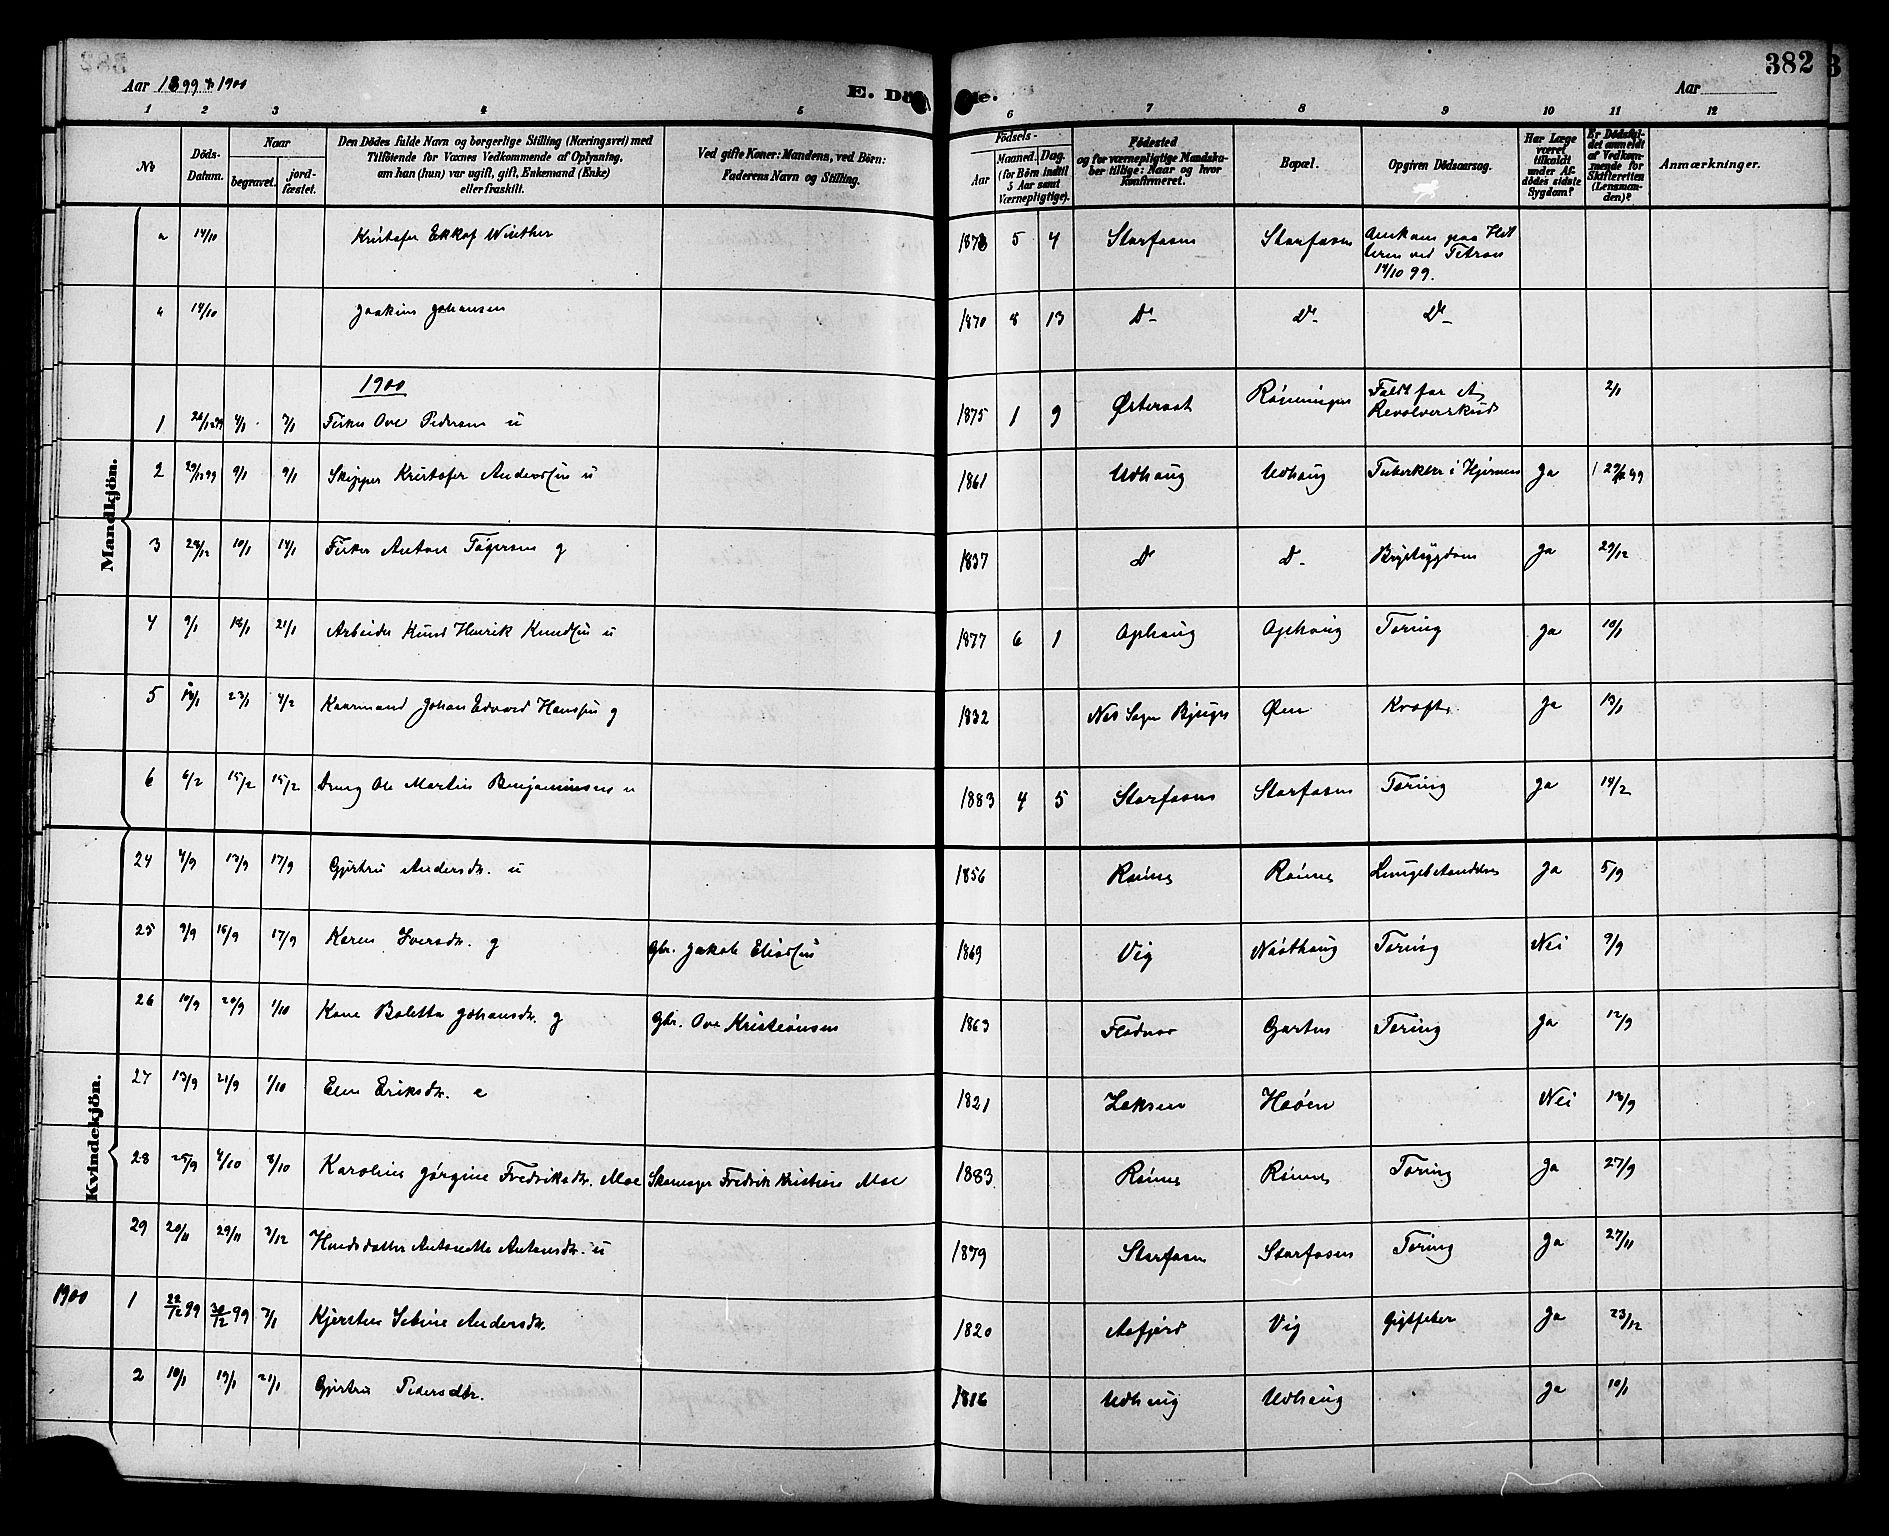 382
Aar 1899 & 1900
E. Dø de.
Aar
1 2 3 4 5 6 7 8 9 10 11 12
No
Döds-Datum.
Naar
begravet.
jordfæstet.
Den Dödes fulde Navn og borgerlige Stilling (Næringsvei) med
Tilföiende for Voxnes Vedkommende af Oplysning,
om han (hun) var ugift, gift, Enkemand (Enke)
eller fraskilt.
Ved gifte Koner: Mandens, ved Börn:
Faderens Navn og Stilling.
Födsels-
Aar
Maaned. Dag.
(for Börn indtil 5 Aar samt Værnepligtige).
Födested
og for værnepligtige Mandskaber tillige: Naar og hvor Konfirmeret.
Bopæl.
Opgiven Dödsaarsag.
Har Læge været tilkaldt under Afdödes sidste Sygdom?
Er Dödsfaldet anmeldt af Vedkommende for Skifteretten (Lensmanden)?
Anmærkninger.
Mandkjön.
14/10 Kristofer Ekkof Winther 1878 5 4 Storfosen Storfosen Omkom paa Hitteren ved Titran 14/10 99.
14/10 Joakim Johansen 1870 8 13 Do Do Do
1900
1 26/12 99 4/1 7/1 Fisker Ove Pedersen u 1875 1 9 Østeraat Rönningen Faldt for Revolverskud 2/1
2 29/12 99 9/1 9/1 Skipper Kristofer Andersen u 1861 Udhaug Udhaug Tuberkler i Hjernen Ja 29/12 99
3 28/12 10/1 14/1 Fisker Anton Tögersen g 1837 Do Do Brystsygdom Ja 29/12
4 9/1 18/1 21/1 Arbeider Knut Henrik Knudsen u 1877 6 1 Ophaug Ophaug Tæring Ja 10/1
5 23/1 4/2 Kaarmand Johan Edvard Hansen g 1832 Nes Sogn Bjugn Øen Kræft Ja 13/1
6 6/2 15/2 15/2 Dreng Ole Martin Benjaminsen u 1883 4 5 Storfosen Storfosen Tæring Ja 14/2
Kvindekjön.
24 4/9 13/9 17/9 Gjertru Andersdtr. u 1856 Rönne Rönne Lungebetændelse Ja 5/9
25 9/9 16/9 17/9 Karen Iversdtr. g Gbr. Jakob Eliassen 1869 Vig Tæring Nei 9/9
26 10/9 20/9 1/10 Kone Boletta Johansdtr. g Gbr. Ove Kristiansen 1863 Fladnes Garten Tæring Ja 12/9
27 13/9 21/9 1/10 Elen Eriksdtr. e 1821 Leksen Haöen Nei 18/9
28 25/9 4/10 8/10 Karoline Jørgine Fredriksdtr. Moe Skomager Fredrik Kristian Moe 1883 Rönne Rönne Tæring Ja 27/9
29 20/11 29/11 3/12 Husdatter Antonette Antonsdtr. u 1879 Storfosen Storfosen Tæring Ja 27/11
1900 1 22/12 99 30/12 99 7/1 Kjersten Sebine Andersdtr. 1820 Aafjord Vig Gigtfeber Ja 23/12
2 10/1 19/1 21/1 Gjertru Pedersdtr. 1816 Udhaug Udhaug Ja 10/1